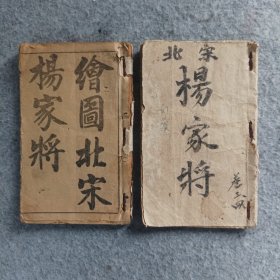 繪圖北宋
楊家將
北宋
楊家將
卷三四